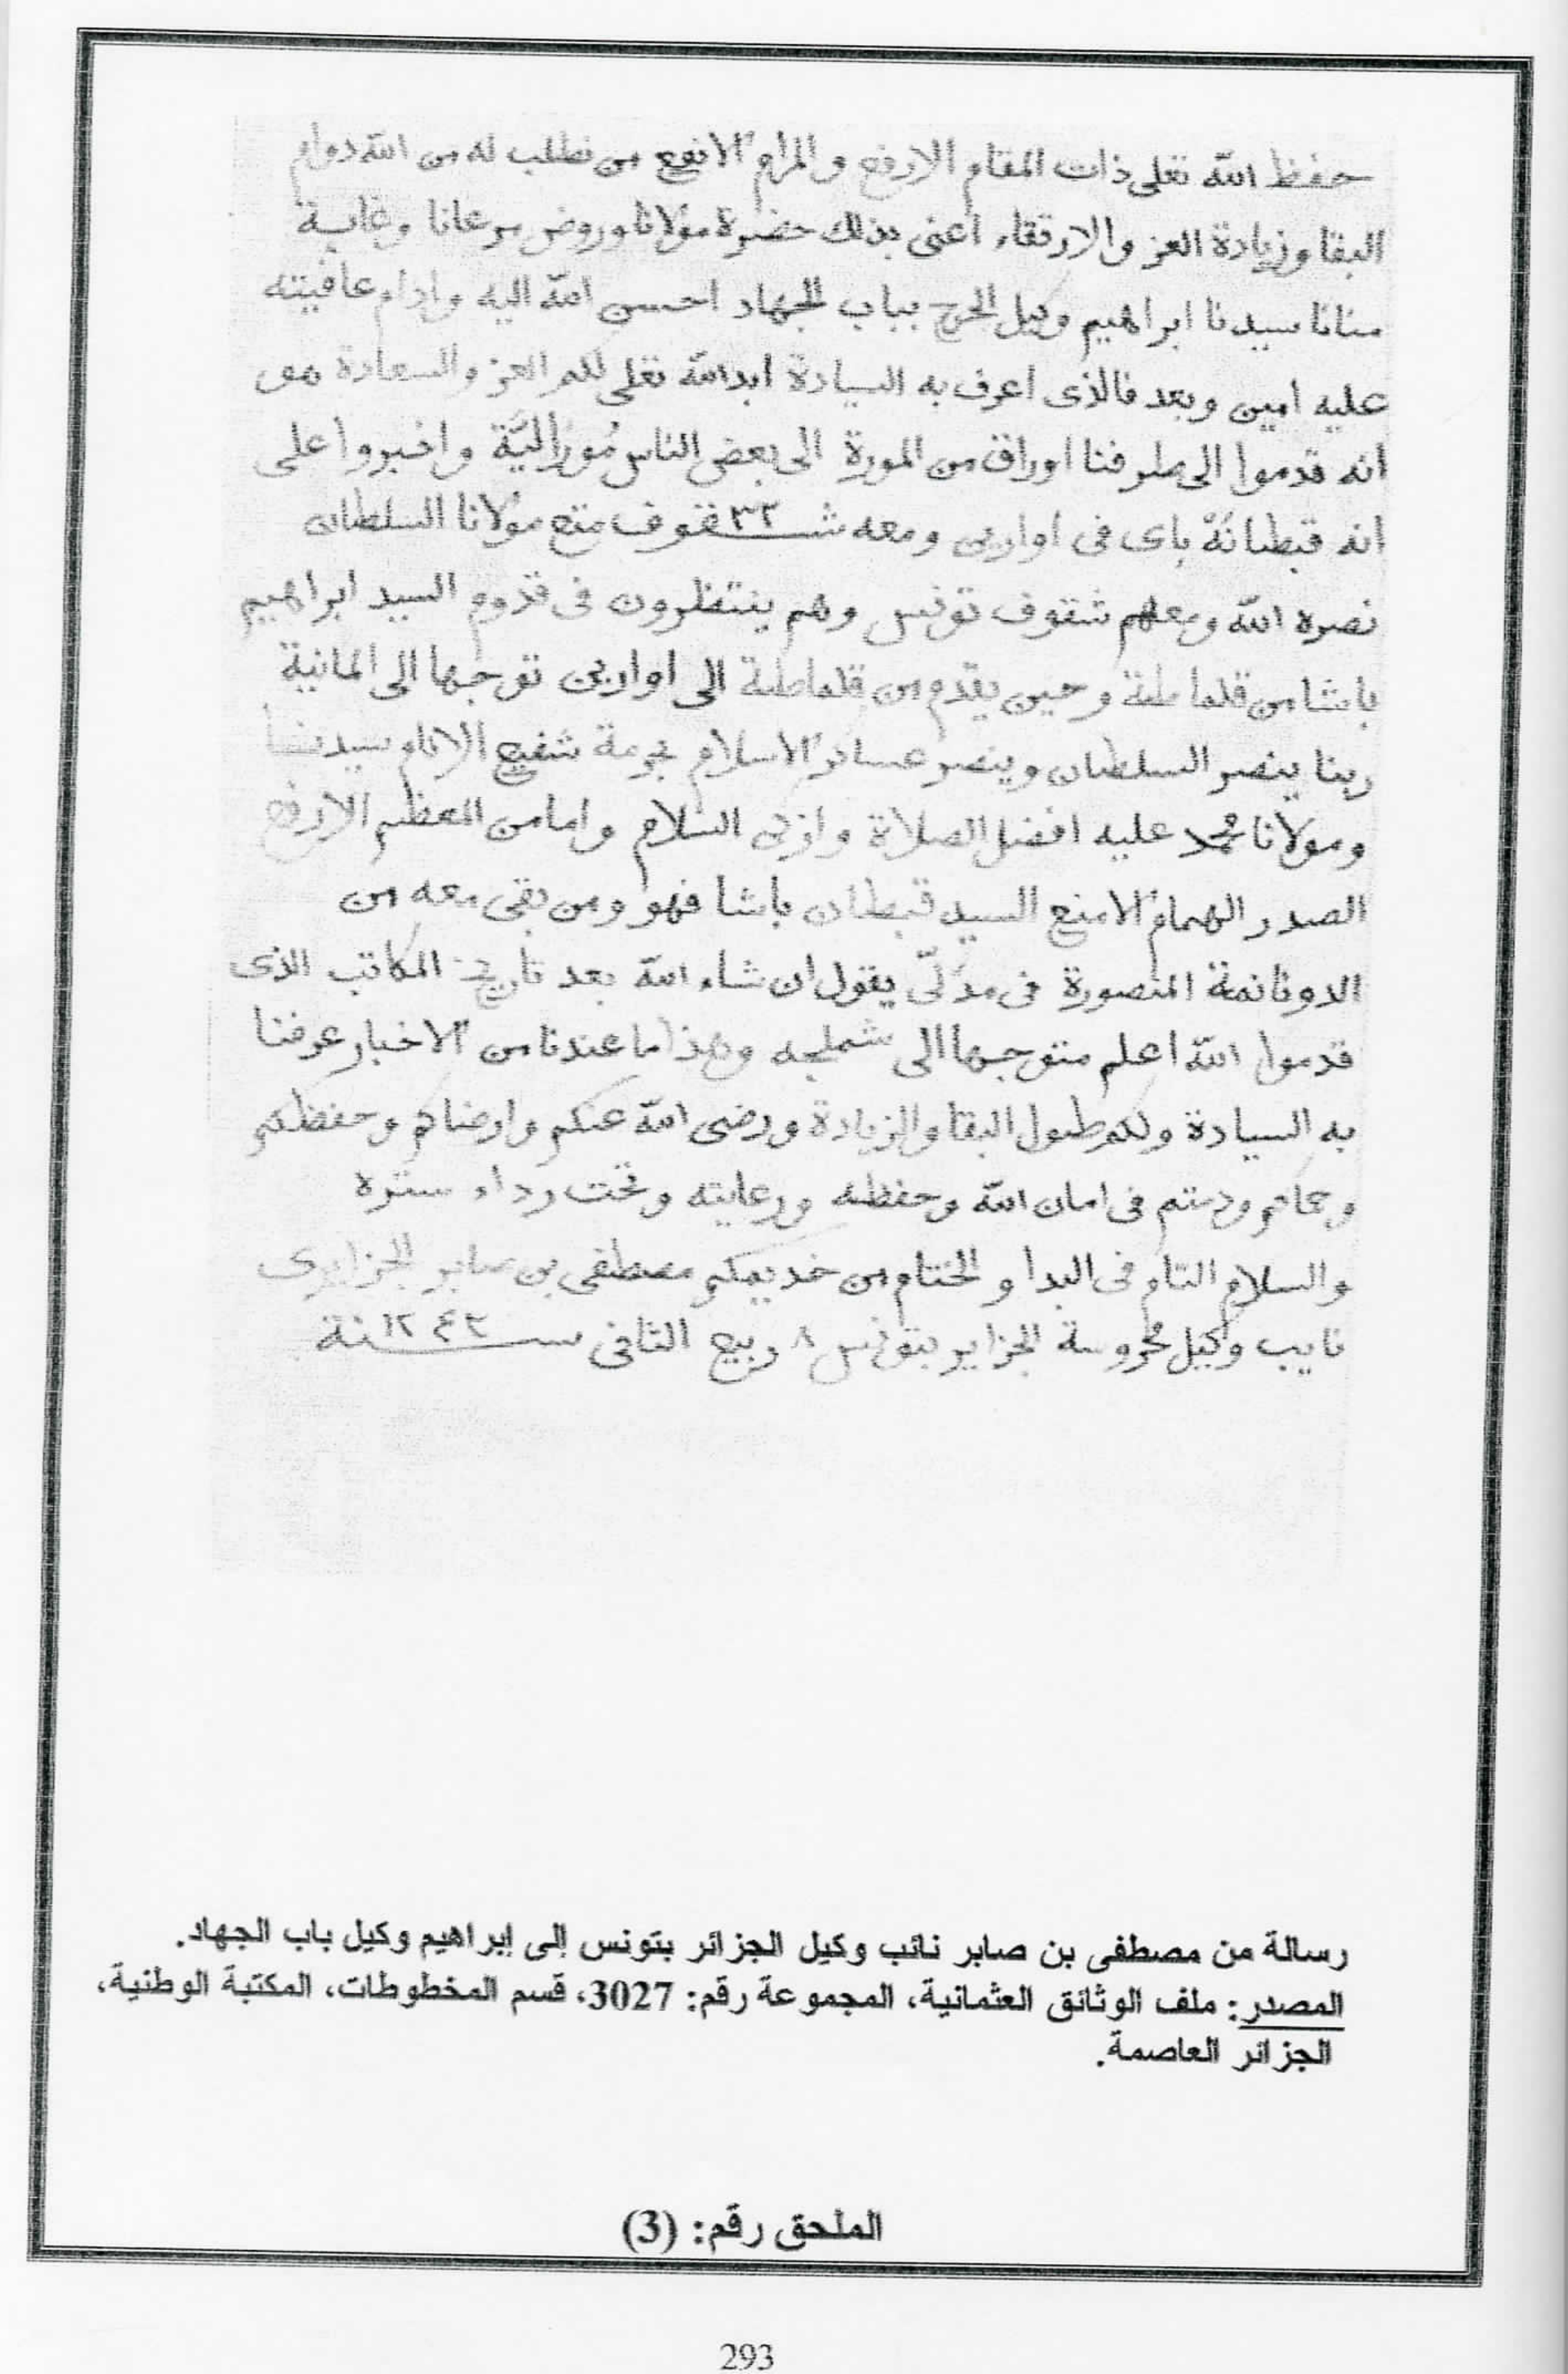 حفظ الله تعلى ذات المقام الارفع والمرام الانفع من نطلب له من الله دوام
البقا وزيادة العز والارتقاء اعنى بذلك حضرة مولانا وروض مرعانا وغاية
منانا سيدنا ابراهيم وكيل الحرج بباب الجهاد احسن الله اليه وادام عافيته
عليه امين وبعد فالذى اعرف به السيادة ابد الله تعلى لكم العز والسعادة هو
انه قدموا الى طرفنا اوراق من المورة الى بعض الناس مُورَالِيَّة واخبروا على
انه قبطانَهْ باى فى اوارين ومعه شـ٣٢ـقوف متع مولانا السلطان
نصره الله ومعهم شقوف تونس وهم ينتظرون فى قدوم السيد ابراهيم
باشا من قلماطة وحين يقدم من قلماطة الى اوارين توجها الى المانية
ربنا ينصر السلطان وينصر عساكر الاسلام بحرمة شفيع الانام سيدنا
ومولانا محمد عليه افضل الصلاة وازكى السلام واما من المعظم الارفع
الصدر الهمام الامنع السيد قبطان باشا فهو ومن بقى معه من
الدونانمة المنصورة فى مدلّى يقول ان شاء الله بعد تاريخ المكاتب الذى
قدموا الله اعلم متوجها الى شملجه وهذا ما عندنا من الاخبار عرفنا
به السيادة ولكم طول البقا والزيادة ورضى الله عنكم وارضاكم وحفظكم
وحماكم ودمتم فى امان الله وحفظه ورعايته وتحت رداء ستره
والسلام التام فى البدا والختام من خديمكم مصطفى بن صابر الجزايرى
نايب وكيل محروسة الجزاير بتونس ٨ ربيع الثانى سـ١٢٤٣ـنة
رسالة من مصطفى بن صابر نائب وكيل الجزائر بتونس إلى إبراهيم وكيل باب الجهاد.
المصدر: ملف الوثائق العثمانية، المجموعة رقم: 3027، قسم المخطوطات، المكتبة الوطنية،
الجزائر العاصمة.
الملحق رقم: (3)
293